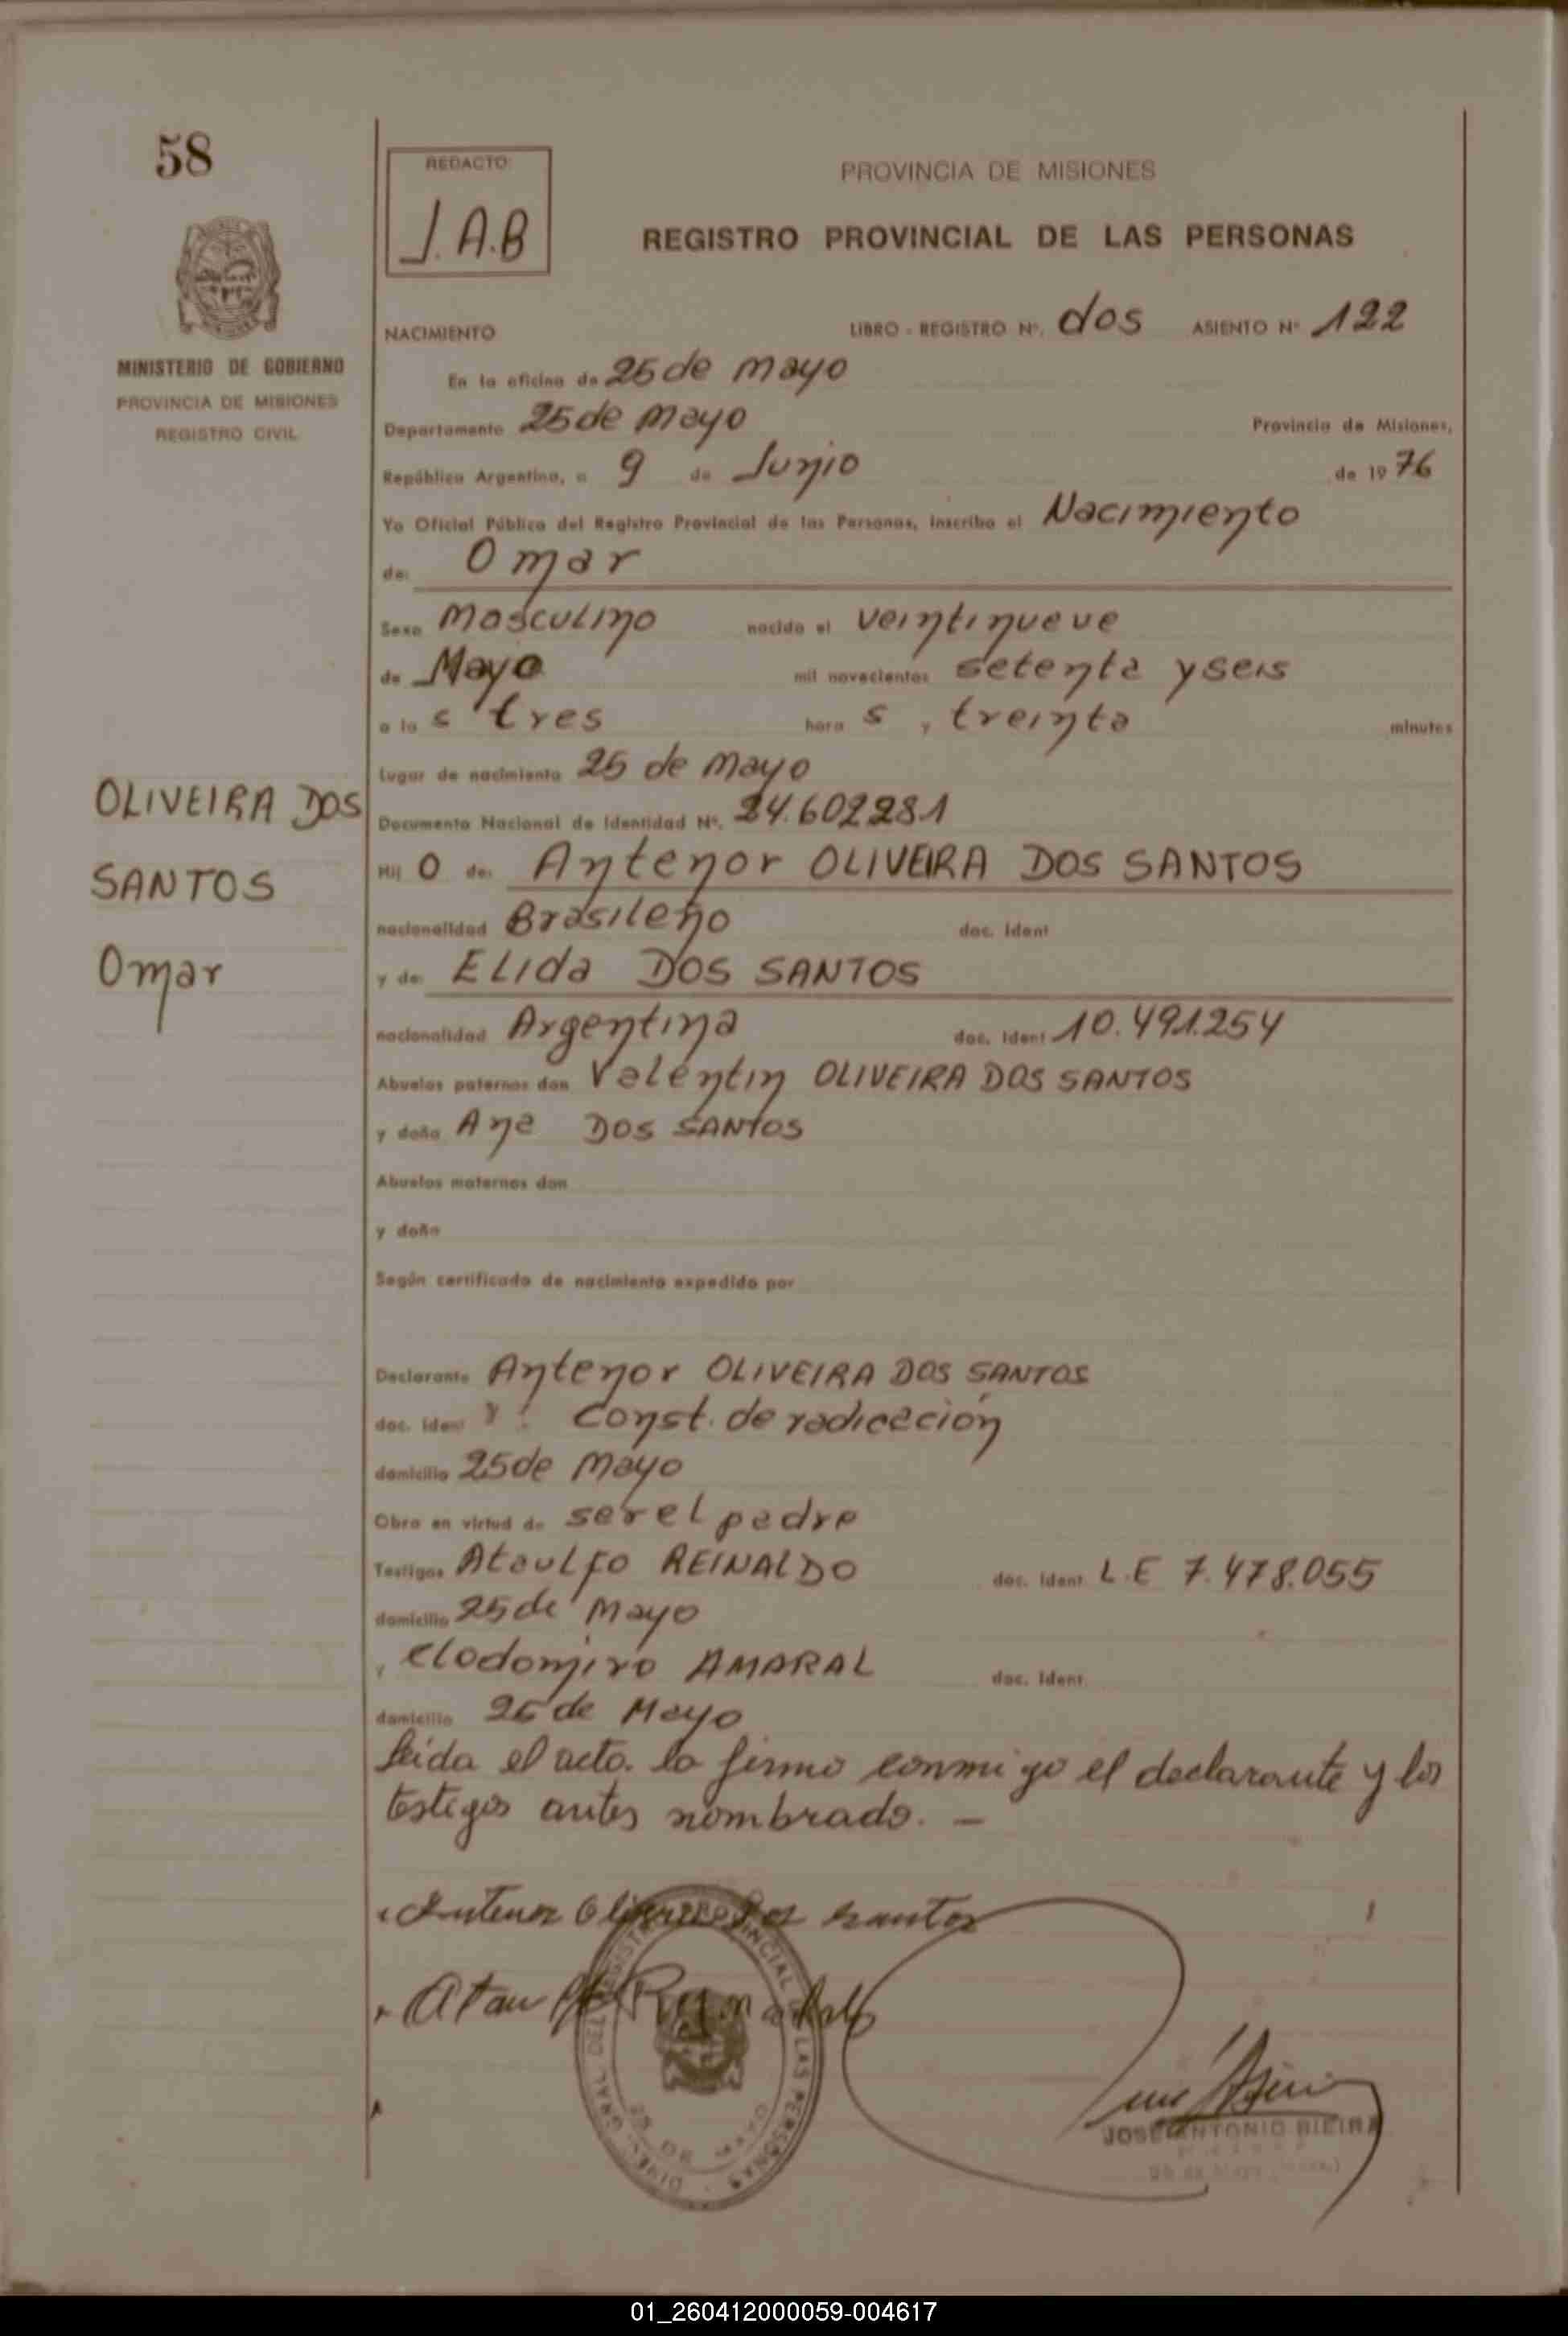 58
MINISTERIO DE GOBIERNO
PROVINCIA DE MISIONES
REGISTRO CIVIL
OLIVEIRA DOS
SANTOS
Omar
REDACTO:
J.A.B
PROVINCIA DE MISIONES
REGISTRO PROVINCIAL DE LAS PERSONAS
NACIMIENTO LIBRO - REGISTRO Nº. dos ASIENTO Nº 122
En la oficina de 25 de mayo
Departamento 25 de mayo Provincia de Misiones,
República Argentina, a 9 de Junio de 1976
Yo Oficial Público del Registro Provincial de las Personas, inscribo el Nacimiento
de: Omar
Sexo masculino nacido el veintinueve
de Mayo mil novecientos setenta y seis
a las tres horas y treinta minutos
Lugar de nacimiento 25 de mayo
Documento Nacional de Identidad Nº. 24.602281
Hijo de: Antenor OLIVEIRA DOS SANTOS
nacionalidad Brasileño doc. ident
y de: ELIda DOS SANTOS
nacionalidad Argentina doc. ident 10.491.254
Abuelos paternos don Valentin OLIVEIRA DOS SANTOS
y doña Ana DOS SANTOS
Abuelos maternos don
y doña
Según certificado de nacimiento expedido por
Declarante Antenor OLIVEIRA DOS SANTOS
doc. ident Const. de radicación
domicilio 25 de mayo
Obra en virtud de ser el padre
Testigos Ataulfo REINALDO doc. ident L.E 7.478.055
domicilio 25 de mayo
y Clodomiro AMARAL doc. ident
domicilio 25 de Mayo
Leida el acta. la firma conmigo el declarante y los
testigos antes nombrado. —
Antenor Oliveira dos santos
Ataulfo Reinaldo
DEL REGISTRO PROVINCIAL DE LAS PERSONAS
25 DE MAYO
JOSE ANTONIO BIEIRA
01_260412000059-004617